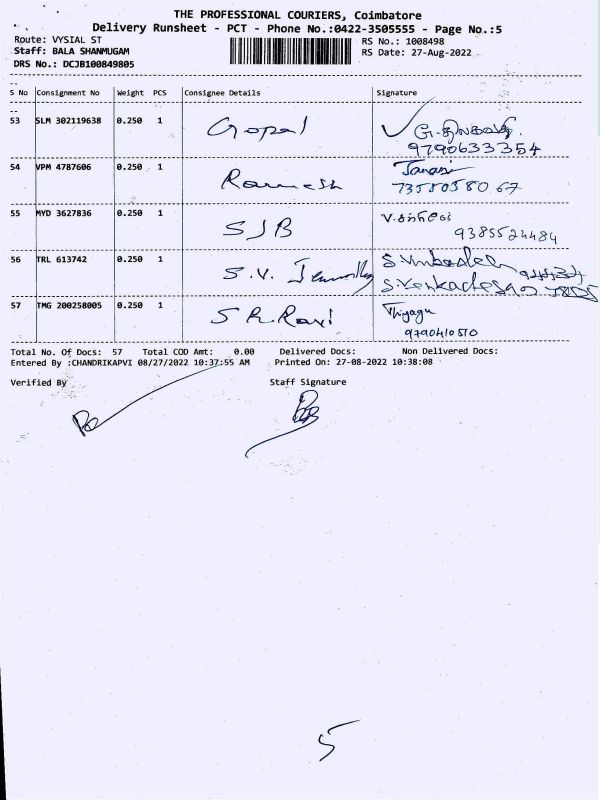 THE PROFESSIONAL COURIERS, Coimbatore
Delivery Runsheet - PCT - Phone No.:0422-3505555 - Page No.:5
Route: VYSIAL ST
RS No.: 1008498
Staff: BALA SHANMUGAM
RS Date: 27-Aug-2022
DRS No.: DCJB100849805
S No Consignment No Weight PCS Consignee Details Signature
53 SLM 302119638 0.250 1 Gopal
9790633354
54 VPM 4787606 0.250 1 Ramesh
55 MYD 3627836 0.250 1 SJB
9385524484
56 TRL 613742 0.250 1 S.V.
57 TMG 200258005 0.250 1 S R.Ravi Thiyagu
9790410510
Total No. Of Docs: 57 Total COD Amt: 0.00 Delivered Docs: Non Delivered Docs:
Entered By :CHANDRIKAPVI 08/27/2022 10:37:55 AM Printed On: 27-08-2022 10:38:08
Verified By Staff Signature
5